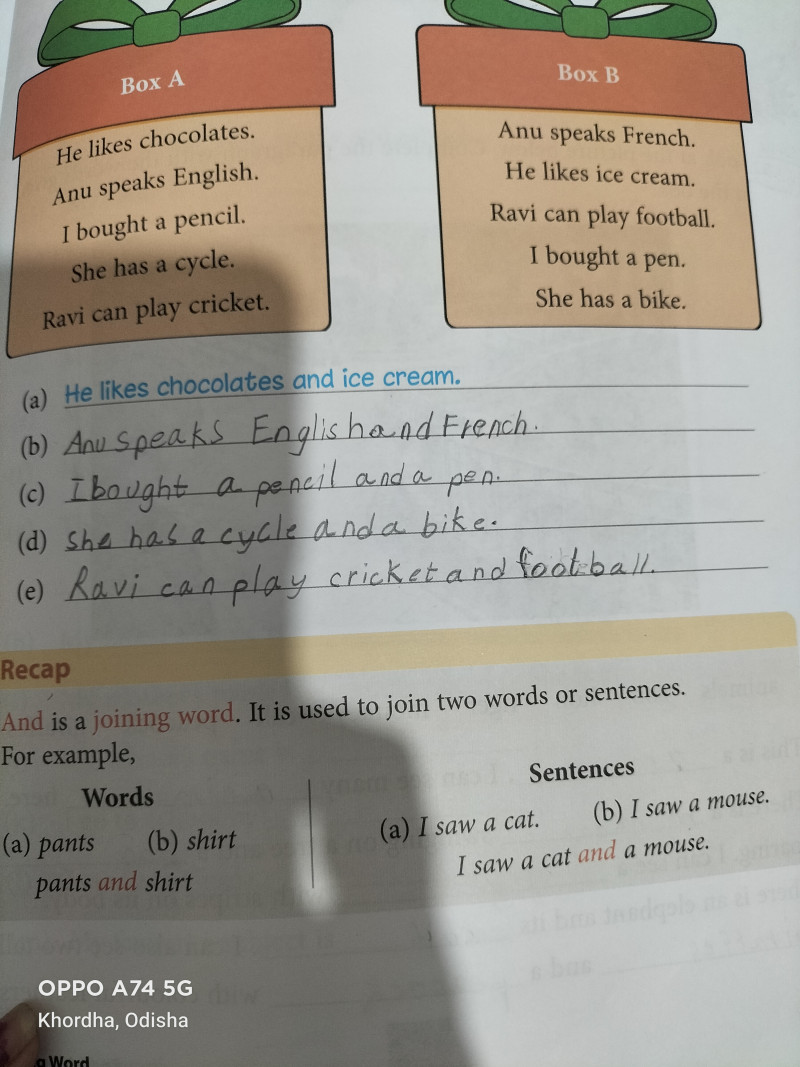 Box A
He likes chocolates.
Anu speaks English.
I bought a pencil.
She has a cycle.
Ravi can play cricket.
Box B
Anu speaks French.
He likes ice cream.
Ravi can play football.
I bought a pen.
She has a bike.
(a) He likes chocolates and ice cream.
(b) Anu speaks English and French.
(c) I bought a pencil and a pen.
(d) she has a cycle and a bike.
(e) Ravi can play cricket and football.
Recap
And is a joining word. It is used to join two words or sentences.
For example,
Words
(a) pants (b) shirt
pants and shirt
Sentences
(a) I saw a cat. (b) I saw a mouse.
I saw a cat and a mouse.
OPPO A74 5G
Khordha, Odisha
g Word